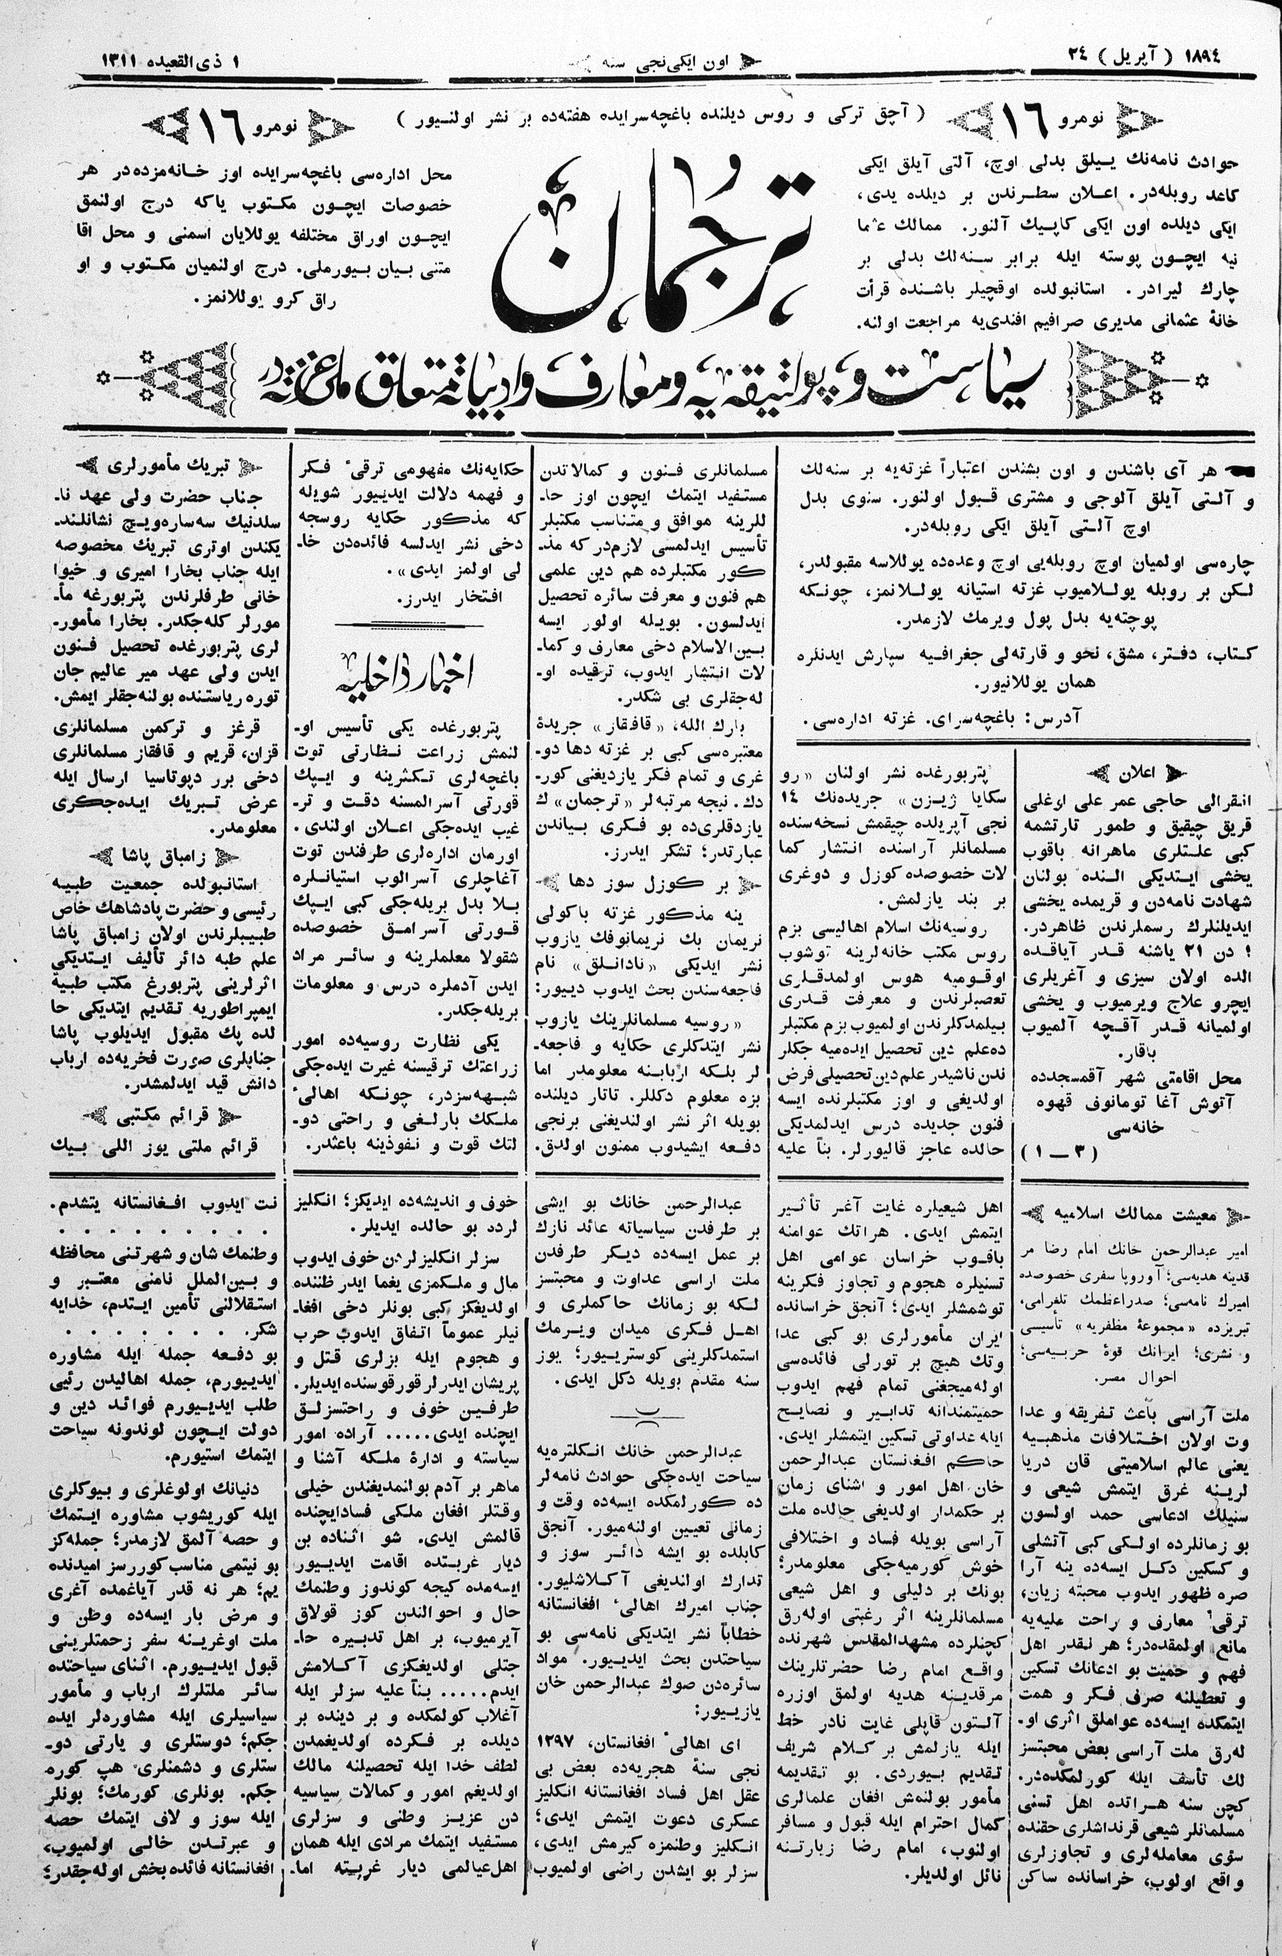 ١٨٩٤ ( آپریل ) ٢٤
اون ایکی نجی سنه
١ ذی القعیده ١٣١١
نومرو ١٦
( آچق ترکی و روس دیلنده باغچه سرایده هفته‌ده بر نشر اولنیور )
نومرو ١٦
حوادث نامه‌نك ییلق بدلی اوچ، آلتی آیلق ایکی
کاغد روبله‌در. اعلان سطرندن بر دیلده یدی،
ایکی دیلده اون ایکی کاپیك آلنور. ممالك عثما
نیه ایچون پوسته ایله برابر سنه‌لك بدلی بر
چارك لیرادر. استانبولده اوقچیلر باشنده قرأت
خانهٔ عثمانی مدیری صرافیم افندی‌یه مراجعت اولنه.
ترجمان
محل اداره‌سی باغچه سرایده اوز خانه‌مزده‌در هر
خصوصات ایچون مکتوب یاکه درج اولنمق
ایچون اوراق مختلفه یوللایان اسمنی و محل اقا
متنی بیان بیورملی. درج اولنمیان مکتوب و او
راق کرو یوللانمز.
سیاست و پولتیقه‌یه و معارف و ادبیاته متعلق ملی غزته‌در
هر آی باشندن و اون بشندن اعتباراً غزته‌یه بر سنه‌لك
و آلتی آیلق آلوجی و مشتری قبول اولنور. سنوی بدل
اوچ آلتی آیلق ایکی روبله‌در.
چاره‌سی اولمیان اوچ روبله‌یی اوچ وعده‌ده یوللاسه مقبولدر،
لکن بر روبله یوللامیوب غزته استیانه یوللانمز، چونکه
پوچته‌یه بدل پول ویرمك لازمدر.
کتاب، دفتر، مشق، نحو و قارته‌لی جغرافیه سپارش ایدنلره
همان یوللانیور.
آدرس: باغچه‌سرای. غزته اداره‌سی.
اعلان
انقرالی حاجی عمر علی اوغلی
قریق چیقیق و طمور تارتشمه
کبی علتلری ماهرانه باقوب
یخشی ایتدیکی النده بولنان
شهادت نامه‌دن و قریمده یخشی
ایدیلنلرك رسملرندن ظاهردر.
١ دن ٢١ یاشنه قدر آیاقده
الده اولان سیزی و آغریلری
ایچرو علاج ویرمیوب و یخشی
اولمیانه قدر آقچه آلمیوب
باقار.
محل اقامتی شهر آقمسجدده
آتوش آغا تومانوف قهوه
خانه‌سی
(١ — ٣)
پتربورغده نشر اولنان «رو
سکایا ژیزن» جریده‌نك ١٤
نجی آپریلده چیقمش نسخه‌سنده
مسلمانلر آراسنده انتشار کما
لات خصوصده کوزل و دوغری
بر بند یازلمش.
روسیه‌نك اسلام اهالیسی بزم
روس مکتب خانه‌لرینه توشوب
اوقومیه هوس اولمدقلری
تعصبلرندن و معرفت قدری
بیلمدکلرندن اولمیوب بزم مکتبلر
ده علم دین تحصیل ایده‌میه جکلر
ندن ناشیدر علم دین تحصیلی فرض
اولدیغی و اوز مکتبلرنده ایسه
فنون جدیده درس ایدلمدیکی
حالده عاجز قالیورلر. بناً علیه
مسلمانلری فنون و کمالاتدن
مستفید ایتمك ایچون اوز حا‌ـ
للرینه موافق و متناسب مکتبلر
تأسیس ایدلمسی لازمدر که مذ‌ـ
کور مکتبلرده هم دین علمی
هم فنون و معرفت سائره تحصیل
ایدلسون. بویله اولور ایسه
بین‌الاسلام دخی معارف و کما‌ـ
لات انتشار ایدوب، ترقیده او‌ـ
له‌جقلری بی شکدر.
بارك الله، «قافقاز» جریدهٔ
معتبره‌سی کبی بر غزته دها دو‌ـ
غری و تمام فکر یازدیغنی کور‌ـ
دك. نیجه مرتبه‌لر «ترجمان» ك
یازدقلری‌ده بو فکری بیاندن
عبارتدر؛ تشکر ایدرز.
بر کوزل سوز دها
ینه مذکور غزته باکولی
نریمان بك نریمانوفك یازوب
نشر ایدیکی «نادانلق» نام
فاجعه‌سندن بحث ایدوب دییور:
«روسیه مسلمانلرینك یازوب
نشر ایتدکلری حکایه و فاجعه‌ـ
لر بلکه اربابنه معلومدر اما
بزه معلوم دکللر. تاتار دیلنده
بویله اثر نشر اولندیغنی برنجی
دفعه ایشیدوب ممنون اولدق.
حکایه‌نك مفهومی ترقیٔ فکر
و فهمه دلالت ایدییور شویله
که مذکور حکایه روسجه
دخی نشر ایدلسه فائده‌دن خا‌ـ
لی اولمز ایدی».
افتخار ایدرز.
اخبار داخلیه
پتربورغده یکی تأسیس او‌ـ
لنمش زراعت نظارتی توت
باغچه‌لری تکثرینه و ایپك
قورتی آسرالمسنه دقت و تر‌ـ
غیب ایده‌جکی اعلان اولندی.
اورمان اداره‌لری طرفندن توت
آغاچلری آسرالوب استیانلره
بلا بدل بریله‌جکی کبی ایپك
قورتی آسرامق خصوصده
شقولا معلملرینه و سائر مراد
ایدن آدملره درس و معلومات
بریله‌جکدر.
یکی نظارت روسیه‌ده امور
زراعتك ترقیسنه غیرت ایده‌جکی
شبهه‌سزدر، چونکه اهالیٔ
ملکك بارلغی و راحتی دو‌ـ
لتك قوت و نفوذینه باعثدر.
تبریك مأمورلری
جناب حضرت ولی عهد نا‌ـ
سلدنیك سه‌ساره‌ویچ نشانلند‌ـ
یکندن اوتری تبریك مخصوصه
ایله جناب بخارا امیری و خیوا
خانی طرفلرندن پتربورغه مأ‌ـ
مورلر کله‌جکدر. بخارا مأمور‌ـ
لری پتربورغده تحصیل فنون
ایدن ولی عهد میر عالیم جان
توره ریاستنده بولنه‌جقلر ایمش.
قرغز و ترکمن مسلمانلری
قزان، قریم و قافقاز مسلمانلری
دخی برر دپوتاسیا ارسال ایله
عرض تبریك ایده‌جکری
معلومدر.
زامباق پاشا
استانبولده جمعیت طبیه
رئیسی و حضرت پادشاهك خاص
طبیبلرندن اولان زامباق پاشا
علم طبه دائر تألیف ایتدیکی
اثرلرینی پتربورغ مکتب طبیهٔ
ایمپراطوریه تقدیم ایتدیکی حا
لده پك مقبول ایدیلوب پاشا
جنابلری صورت فخریه‌ده ارباب
دانش قید ایدلمشدر.
قرائم مکتبی
قرائم ملتی یوز اللی بیك
معیشت ممالك اسلامیه
امیر عبدالرحمن خانك امام رضا مر
قدینه هدیه‌سی؛ آوروپا سفری خصوصده
امیرك نامه‌سی؛ صدراعظمك تلفرامی،
تبریزده «مجموعهٔ مظفریه» تأسیسی
و نشری؛ ایرانك قوهٔ حربیه‌سی؛
احوال مصر.
ملت آراسی باعث تفریقه و عدا
وت اولان اختلافات مذهبیه
یعنی عالم اسلامیتی قان دریا
لرینه غرق ایتمش شیعی و
سنیلك ادعاسی حمد اولسون
بو زمانلرده اولکی کبی آتشلی
و کسکین دکل ایسه‌ده ینه آرا
صره ظهور ایدوب محبته زیان،
ترقیٔ معارف و راحت علیه‌یه
مانع اولمقده‌در؛ هر نقدر اهل
فهم و حمیت بو ادعانك تسکین
و تعطیلنه صرف فکر و همت
ایتمکده ایسه‌ده عواملق اثری او‌ـ
له‌رق ملت آراسی بعض محبتسز
لك تأسف ایله کورلمکده‌در.
کچن سنه هراتده اهل تسنی
مسلمانلر شیعی قرنداشلری حقنده
سؤی معامله‌لری و تجاوزلری
واقع اولوب، خراسانده ساکن
اهل شیعیلره غایت آغر تأثیر
ایتمش ایدی. هراتك عوامنه
باقوب خراسان عوامی اهل
تسنیلره هجوم و تجاوز فکرینه
توشمشلر ایدی؛ آنجق خراسانده
ایران مأمورلری بو کبی عدا
وتك هیچ بر تورلی فائده‌سی
اوله‌میجغنی تمام فهم ایدوب
حمیتمندانه تدابیر و نصایح
ایله عداوتی تسکین ایتمشلر ایدی.
حاکم افغانستان عبدالرحمن
خان اهل امور و اشنای زمان
بر حکمدار اولدیغی حالده ملت
آراسی بویله فساد و اختلافی
خوش کورمیه‌جکی معلومدر؛
بونك بر دلیلی و اهل شیعی
مسلمانلرینه اثر رغبتی اوله‌رق
کچنلرده مشهدالمقدس شهرنده
واقع امام رضا حضرتلرینك
مرقدینه هدیه اولمق اوزره
آلتون قاپلی غایت نادر خط
ایله یازلمش بر کلام شریف
تقدیم بیوردی. بو تقدیمه
مأمور بولنمش افغان علمالری
کمال احترام ایله قبول و مسافر
اولنوب، امام رضا زیارتنه
نائل اولدیلر.
عبدالرحمن خانك بو ایشی
بر طرفدن سیاسیاته عائد نازك
بر عمل ایسه‌ده دیکر طرفدن
ملت اراسی عداوت و محبتسز
لکه بو زمانك حاکملری و
اهل فکری میدان ویرمك
استمدکلرینی کوستریور؛ یوز
سنه مقدم بویله دکل ایدی.
عبدالرحمن خانك انکلتره‌یه
سیاحت ایده‌جکی حوادث نامه‌لر
ده کورلمکده ایسه‌ده وقت و
زمانی تعیین اولنه‌میور. آنجق
کابلده بو ایشه دائر سوز و
تدارك اولندیغی آکلاشلیور.
جناب امیرك اهالیٔ افغانستانه
خطاباً نشر ایتدیکی نامه‌سی بو
سیاحتدن بحث ایدییور. مواد
سائره‌دن صوك عبدالرحمن خان
یازییور:
ای اهالیٔ افغانستان، ١٢٩٧
نجی سنهٔ هجریه‌ده بعض بی
عقل اهل فساد افغانستانه انکلیز
عسکری دعوت ایتمش ایدی؛
انکلیز وطنمزه کیرمش ایدی،
سزلر بو ایشدن راضی اولمیوب
خوف و اندیشه‌ده ایدیکز؛ انکلیز
لرده بو حالده ایدیلر.
سزلر انکلیزلردن خوف ایدوب
مال و ملکمزی یغما ایدر ظننده
اولدیغکز کبی بونلر دخی افغا‌ـ
نیلر عموماً اتفاق ایدوب حرب
و هجوم ایله بزلری قتل و
پریشان ایدرلر قورقوسنده ایدیلر.
طرفین خوف و راحتسزلق
ایچنده ایدی..... آراده امور
سیاسته و ادارهٔ ملکه آشنا و
ماهر بر آدم بولنمدیغندن خیلی
وقتلر افغان ملکی فسادایچنده
قالمش ایدی. شو اثناده بن
دیار غربتده اقامت ایدییور
ایسه‌مده کیجه کوندوز وطنمك
حال و احوالندن کوز قولاق
آیرمیوب، بر اهل تدبیره حا‌ـ
جتلی اولدیغکزی آکلامش
ایدم..... بناً علیه سزلر ایله
آغلاب کولمکده و بر دینده بر
دیلده بر فکرده اولدیغمدن
لطف خدا ایله تحصیلنه مالك
اولدیغم امور و کمالات سیاسیه
دن عزیز وطنی و سزلری
مستفید ایتمك مرادی ایله همان
اهل‌عیالمی دیار غربته اما‌ـ
نت ایدوب افغانستانه یتشدم.
. . . . . . . . . .
وطنمك شان و شهرتنی محافظه
و بین‌الملل نامنی معتبر و
استقلالنی تأمین ایتدم، خدایه
شکر. . . . . . . . .
بو دفعه جمله ایله مشاوره
ایدییورم، جمله اهالیدن رئیی
طلب ایدییورم فوائد دین و
دولت ایچون لوندونه سیاحت
ایتمك استیورم.
دنیانك اولوغلری و بیوکلری
ایله کوریشوب مشاوره ایتمك
و حصه آلمق لازمدر؛ جمله‌کز
بو نیتمی مناسب کوررسز امیدنده
یم؛ هر نه قدر آیاغمده آغری
و مرض بار ایسه‌ده وطن و
ملت اوغرینه سفر زحمتلرینی
قبول ایدییورم. اثنای سیاحتده
سائر ملتلرك ارباب و مأمور
سیاسیلری ایله مشاوره‌لر ایده
جکم؛ دوستلری و یارتی دو‌ـ
ستلری و دشمنلری هپ کوره
جکم. بونلری کورمك؛ بونلر
ایله سوز و لاف ایتمك حصه
و عبرتدن خالی اولمیوب،
افغانستانه فائده بخش اوله‌جقدر؛